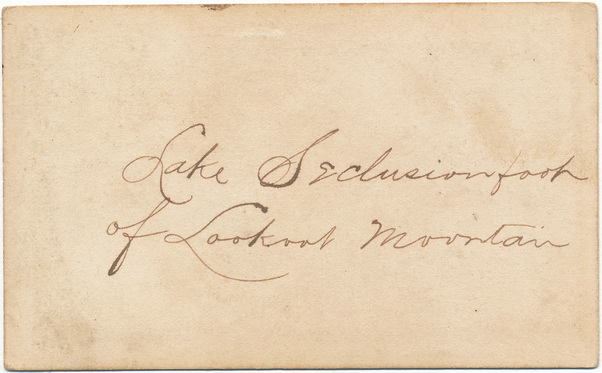 Lake Seclusion foot
of Lookout Mountain